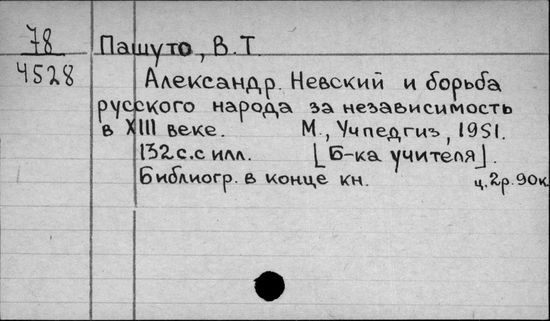 78
4528
Пашуто, В.Т.
Александр. Невский и борьба
русского народа за независимость
в XIII веке. М., Учпедгиз, 1951.
132 с. с илл. [Б-ка учителя].
Библиогр. в конце кн. ц. 2р. 90к